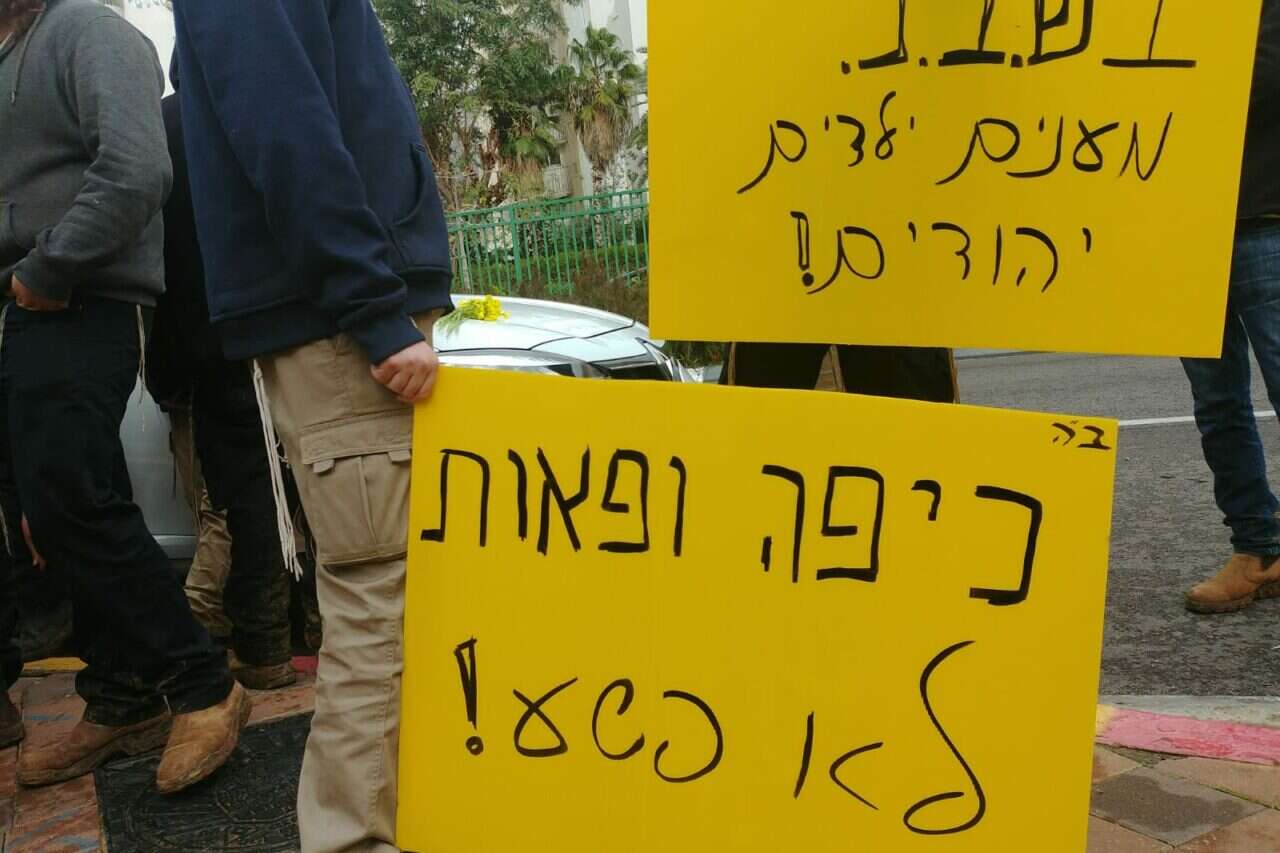 בש.ב.כ.
מענים ילדים
יהודים!
ב"ה
כיפה ופאות
לא פשע!